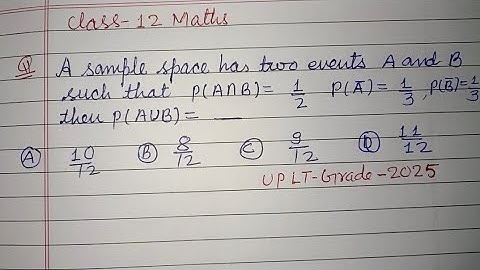 Class-12 Maths
Q A sample space has two events A and B
such that P(A∩B)= 1/2 P(Ā)= 1/3, P(B̄)=1/3
then P(A∪B)= ____
(A) 10/12 (B) 8/12 (C) 9/12 (D) 11/12
UP LT-Grade-2025